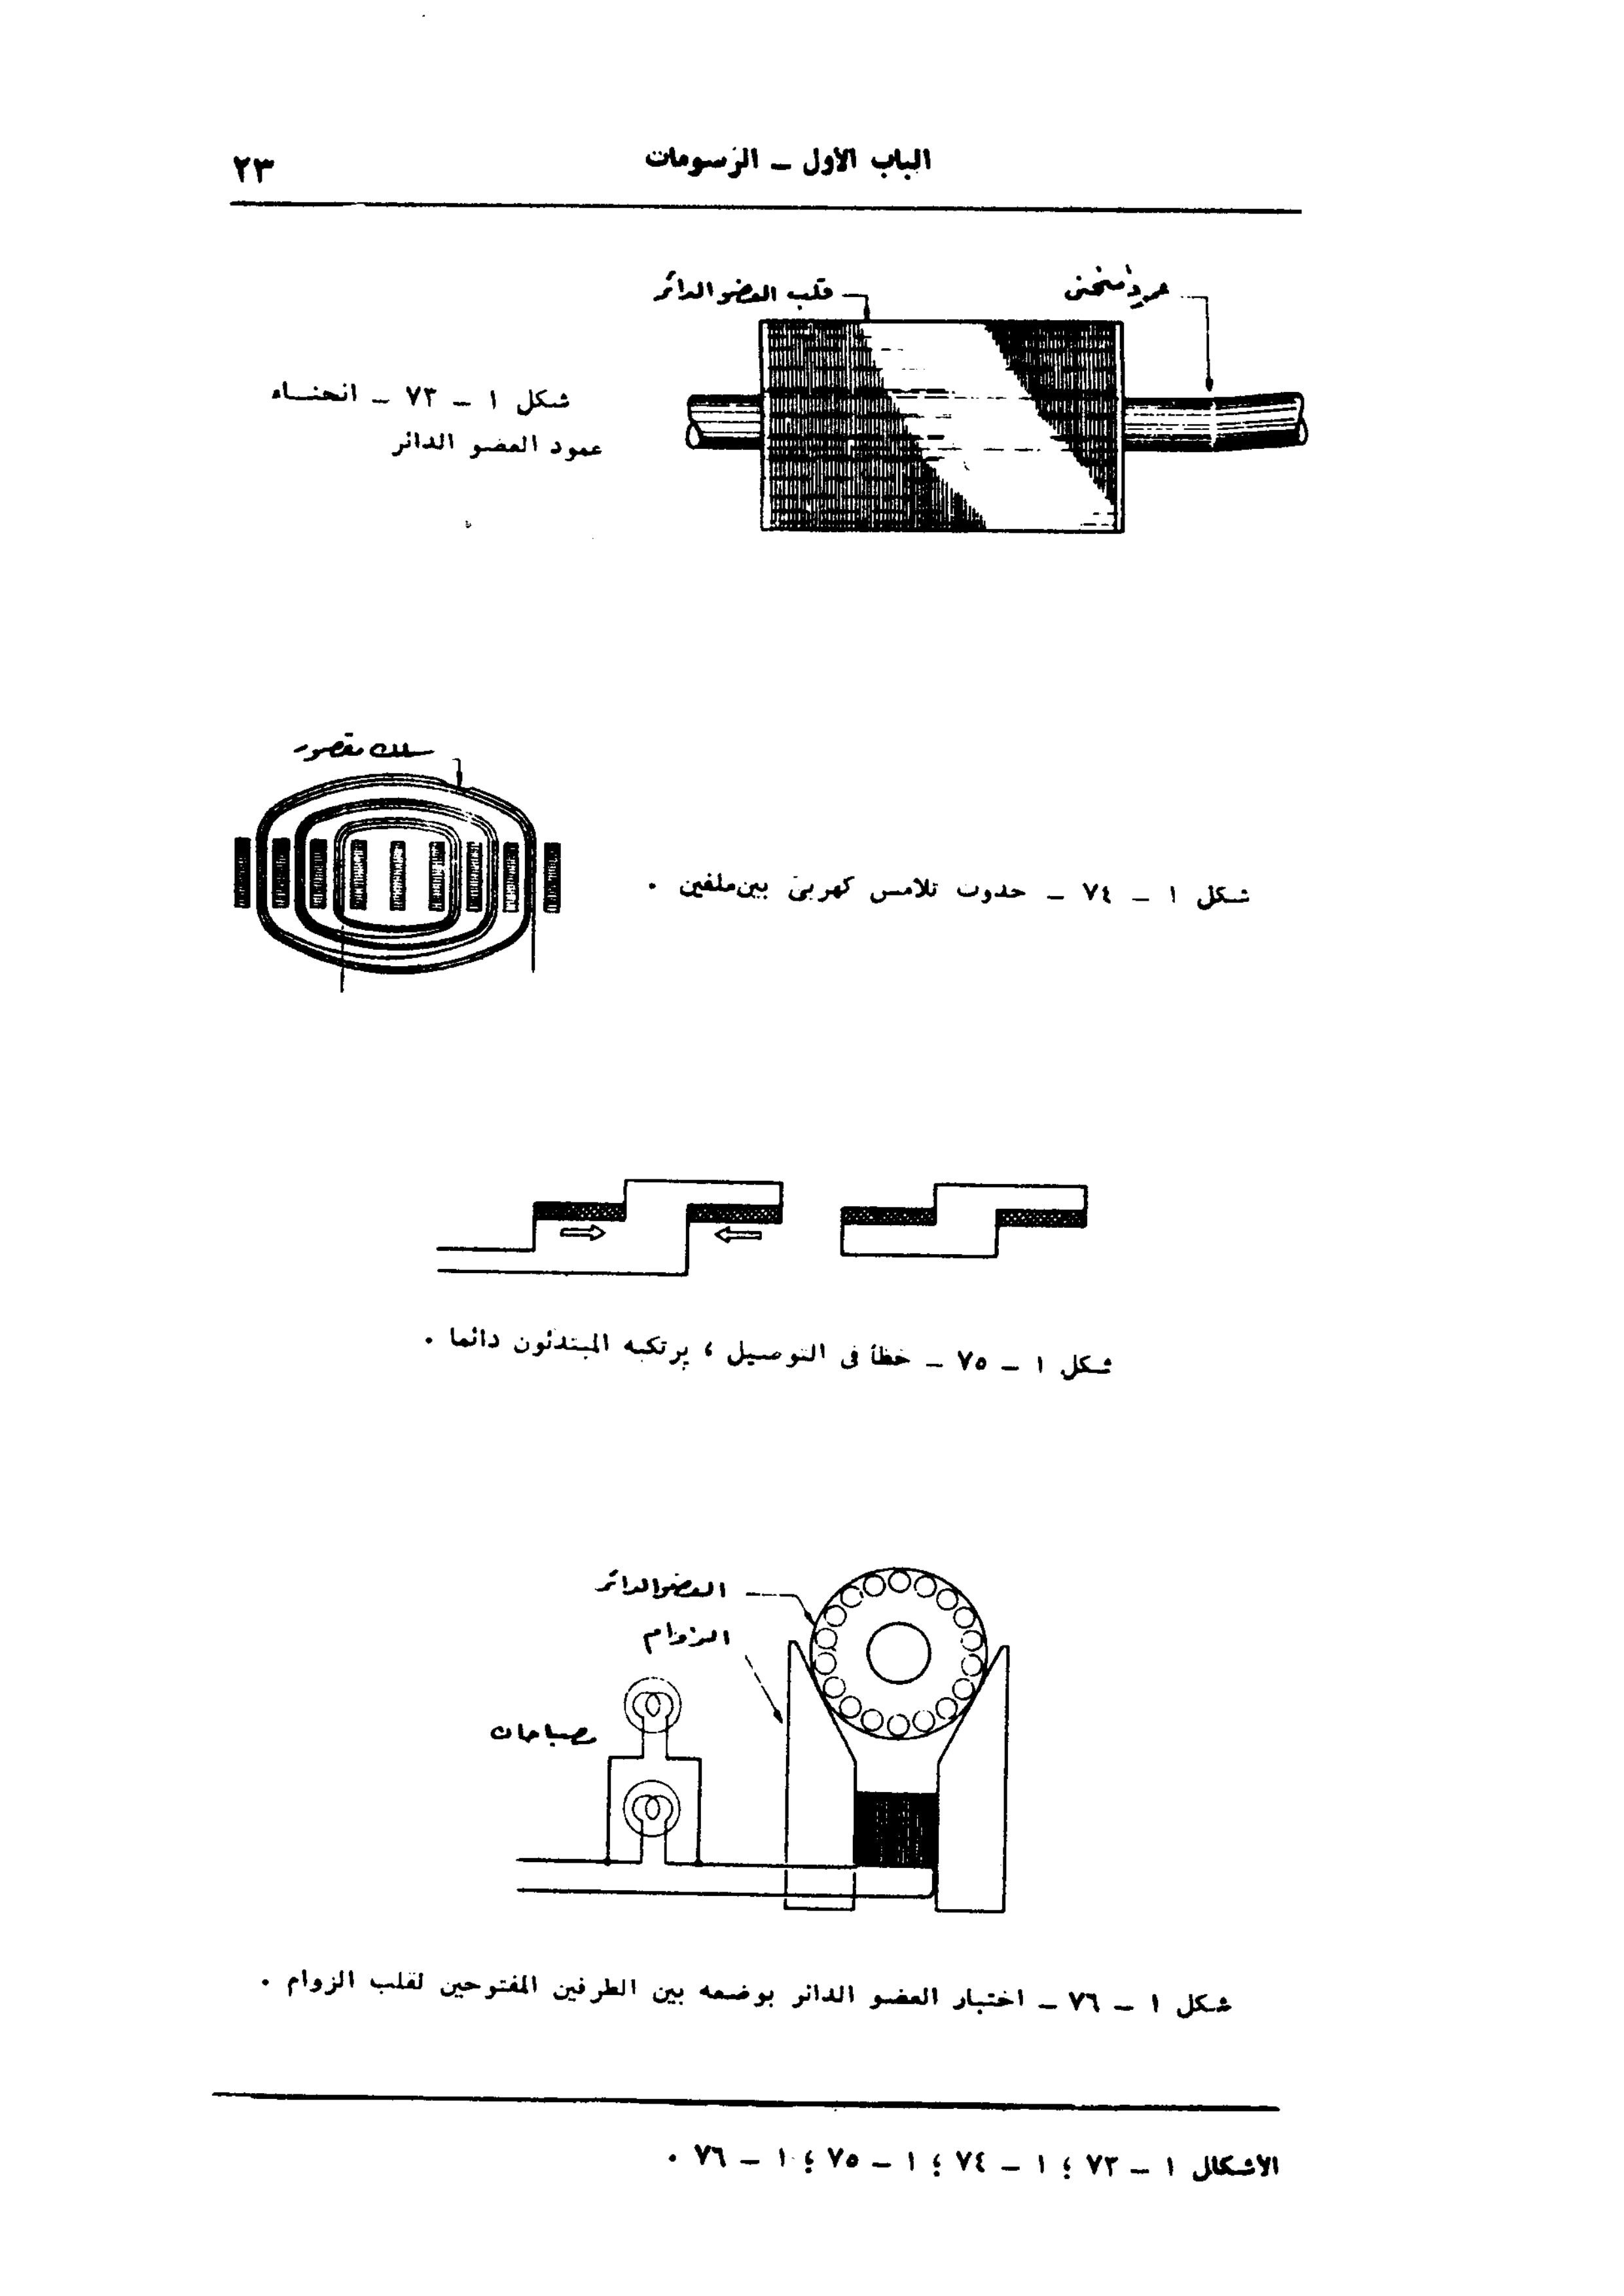 الباب الأول – الرسومات
٢٣
قلب العضو الدائر
عمود منحنى
شكل ١ – ٧٣ – انحنــاء
عمود العضو الدائر
سلك مقصور
شكل ١ – ٧٤ – حدوث تلامس كهربى بين ملفين .
شكل ١ – ٧٥ – خطأ فى التوصيل ، يرتكبه المبتدئون دائما .
العضو الدائر
الزوام
مصباحان
شكل ١ – ٧٦ – اختبار العضو الدائر بوضعه بين الطرفين المفتوحين لقلب الزوام .
الأشكال ١ – ٧٣ ؛ ١ – ٧٤ ؛ ١ – ٧٥ ؛ ١ – ٧٦ .